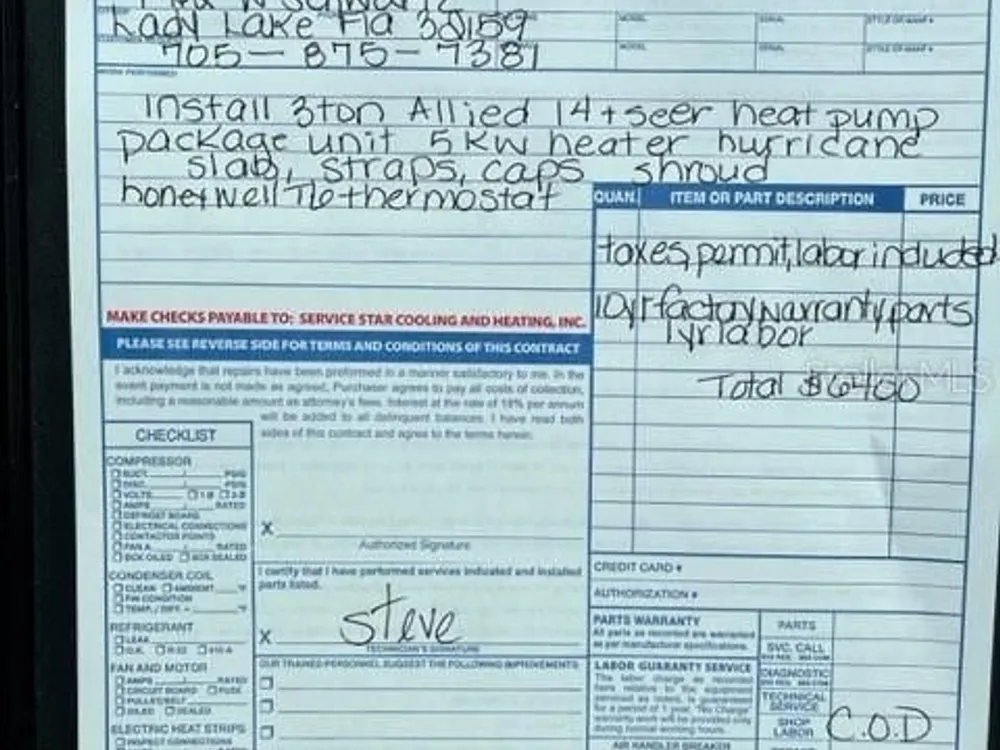 Lady Lake Fla 32159
705-875-7381
MODEL SERIAL STYLE OR MANF #
MODEL SERIAL STYLE OR MANF #
WORK PERFORMED
Install 3ton Allied 14+seer heat pump
package unit 5KW heater hurricane
slab, straps, caps shroud
honeywell T6 thermostat
QUAN. ITEM OR PART DESCRIPTION PRICE
taxes, permit, labor included
10yr factory warranty parts
1yr labor
Total $6400
MAKE CHECKS PAYABLE TO: SERVICE STAR COOLING AND HEATING, INC.
PLEASE SEE REVERSE SIDE FOR TERMS AND CONDITIONS OF THIS CONTRACT
I acknowledge that repairs have been preformed in a manner satisfactory to me. In the
event payment is not made as agreed, Purchaser agrees to pay all costs of collection,
including a reasonable amount as attorney's fees. Interest at the rate of 18% per annum
will be added to all delinquent balances. I have read both
sides of this contract and agree to the terms herein.
CHECKLIST
COMPRESSOR
SUCT. / PSIG
DISC. / PSIG
VOLTS 1-Ø 3-Ø
AMPS / RATED
DEFROST BOARD
ELECTRICAL CONNECTIONS
CONTACTOR POINTS
FAN A. / RATED
BOX OILED BOX SEALED
CONDENSER COIL
CLEAN AMBIENT °F
FIN CONDITION
TEMP. / DIFF. °F
REFRIGERANT
LEAK
O.K. R-22 410-A
FAN AND MOTOR
AMPS / RATED
CIRCUIT BOARD FUSE
PULLEY/BELT
OILED SEALED
ELECTRIC HEAT STRIPS
INSPECT CONNECTIONS
X
Authorized Signature
I certify that I have performed services indicated and installed
parts listed.
X steve
TECHNICIAN'S SIGNATURE
OUR TRAINED PERSONNEL SUGGEST THE FOLLOWING IMPROVEMENTS
CREDIT CARD #
AUTHORIZATION #
PARTS WARRANTY
All parts as recorded are warranted
as per manufacturer specifications.
LABOR GUARANTY SERVICE
The labor charge as recorded
here relative to the equipment
serviced as noted, is guaranteed
for a period of 1 year. "No Charge"
warranty work will be provided only
during normal working hours.
AIR HANDLER BREAKER
PARTS
SVC. CALL
DIAGNOSTIC
TECHNICAL
SERVICE
SHOP
LABOR
C.O.D